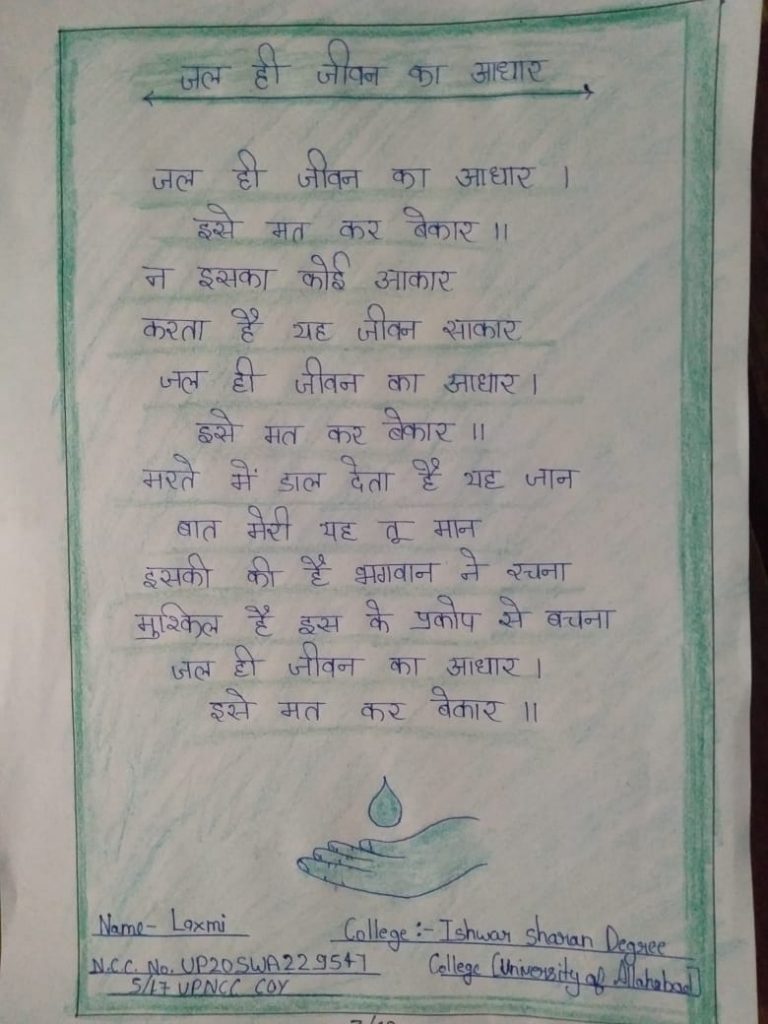 जल ही जीवन का आधार
जल ही जीवन का आधार ।
इसे मत कर बेकार ॥
न इसका कोई आकार
करता है यह जीवन साकार
जल ही जीवन का आधार ।
इसे मत कर बेकार ॥
मरते में डाल देता है यह जान
बात मेरी यह तू मान
इसकी की है भगवान ने रचना
मुश्किल है इस के प्रकोप से बचना
जल ही जीवन का आधार ।
इसे मत कर बेकार ॥
Name- Laxmi
College:- Ishwar Sharan Degree
College (University of Allahabad)
N.C.C. No. UP20SWA229547
5/17 UPNCC COY